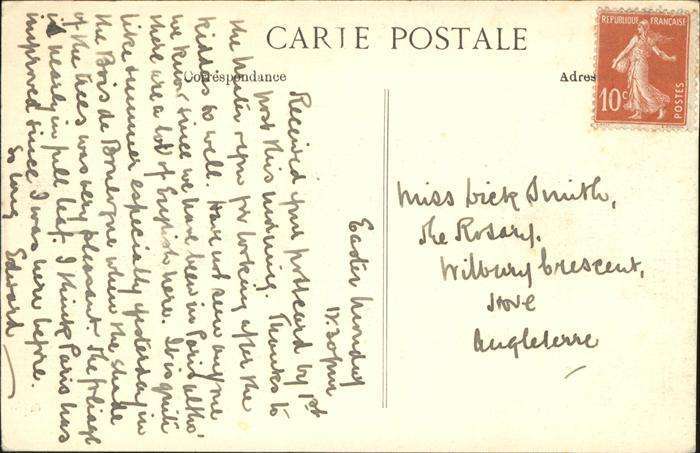 CARTE POSTALE
Correspondance
Adres
REPUBLIQUE FRANÇAISE
10c
POSTES
Easter Monday
12.30pm
Received your postcard by 1st
post this morning. Thanks to
the for looking after the
kiddos so well. Have not seen anyone
we know since we have been in Paris altho'
there are a lot of English here. It is quite
like summer especially yesterday in
the Bois de Boulogne when the shade
of the trees was very pleasant the foliage
is nearly in full leaf. I think Paris has
improved since I was here before.
So long Edward
Miss Dick Smith,
The Rosary,
Wilbury Crescent,
Hove
Angleterre